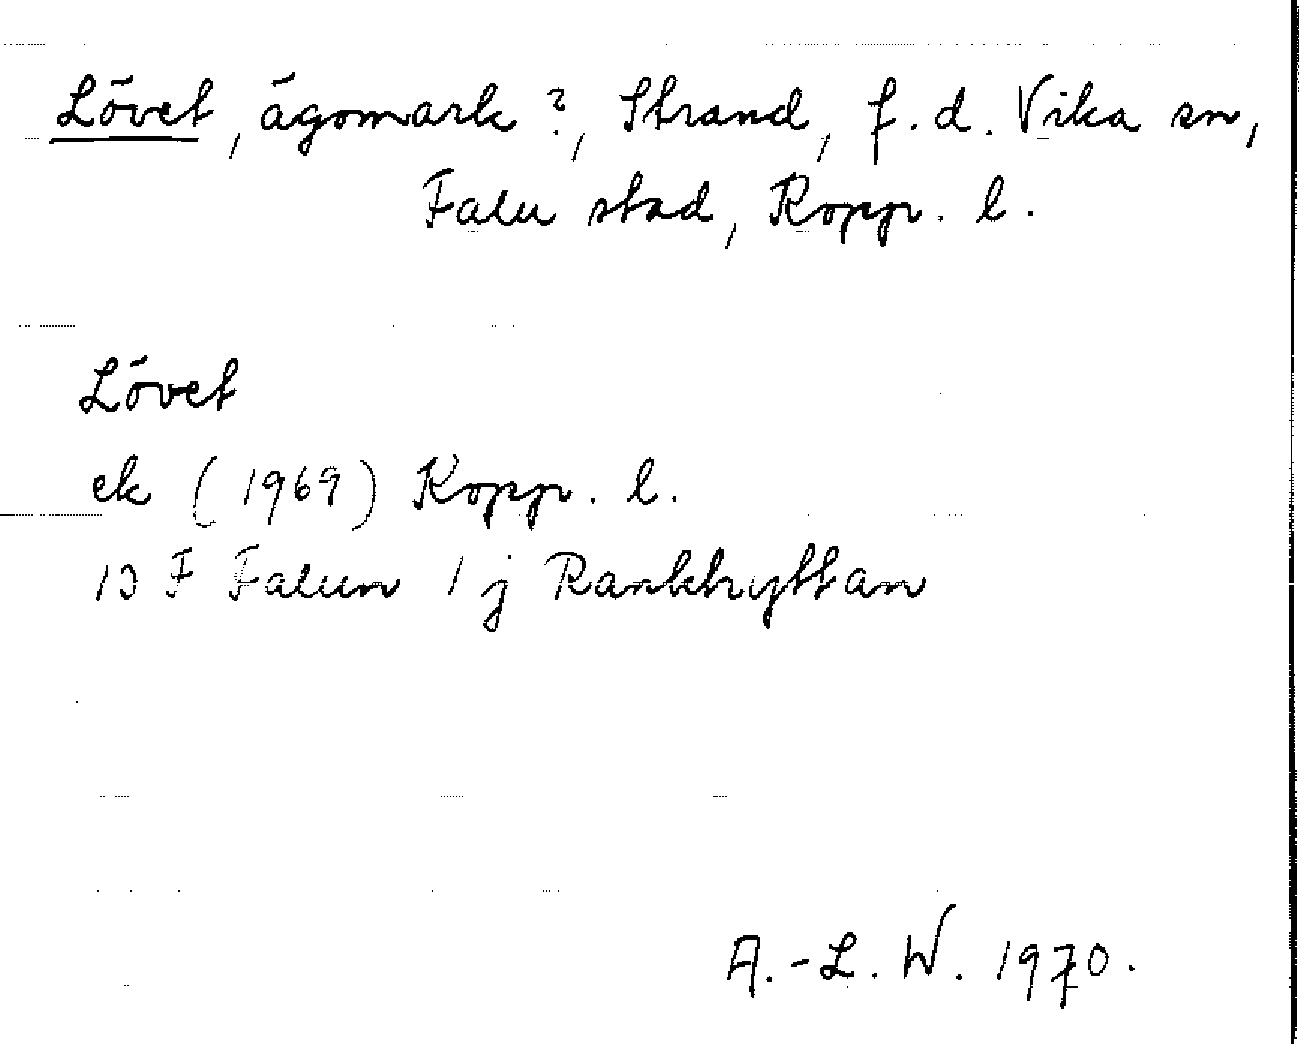 Lövet, ägomark?, Strand, f.d. Vika sn,
Falu stad, Kopp. l.
Lövet
ek (1969) Kopp. l.
13 F Falun 1 j Rankhyttan
A.-L. W. 1970.